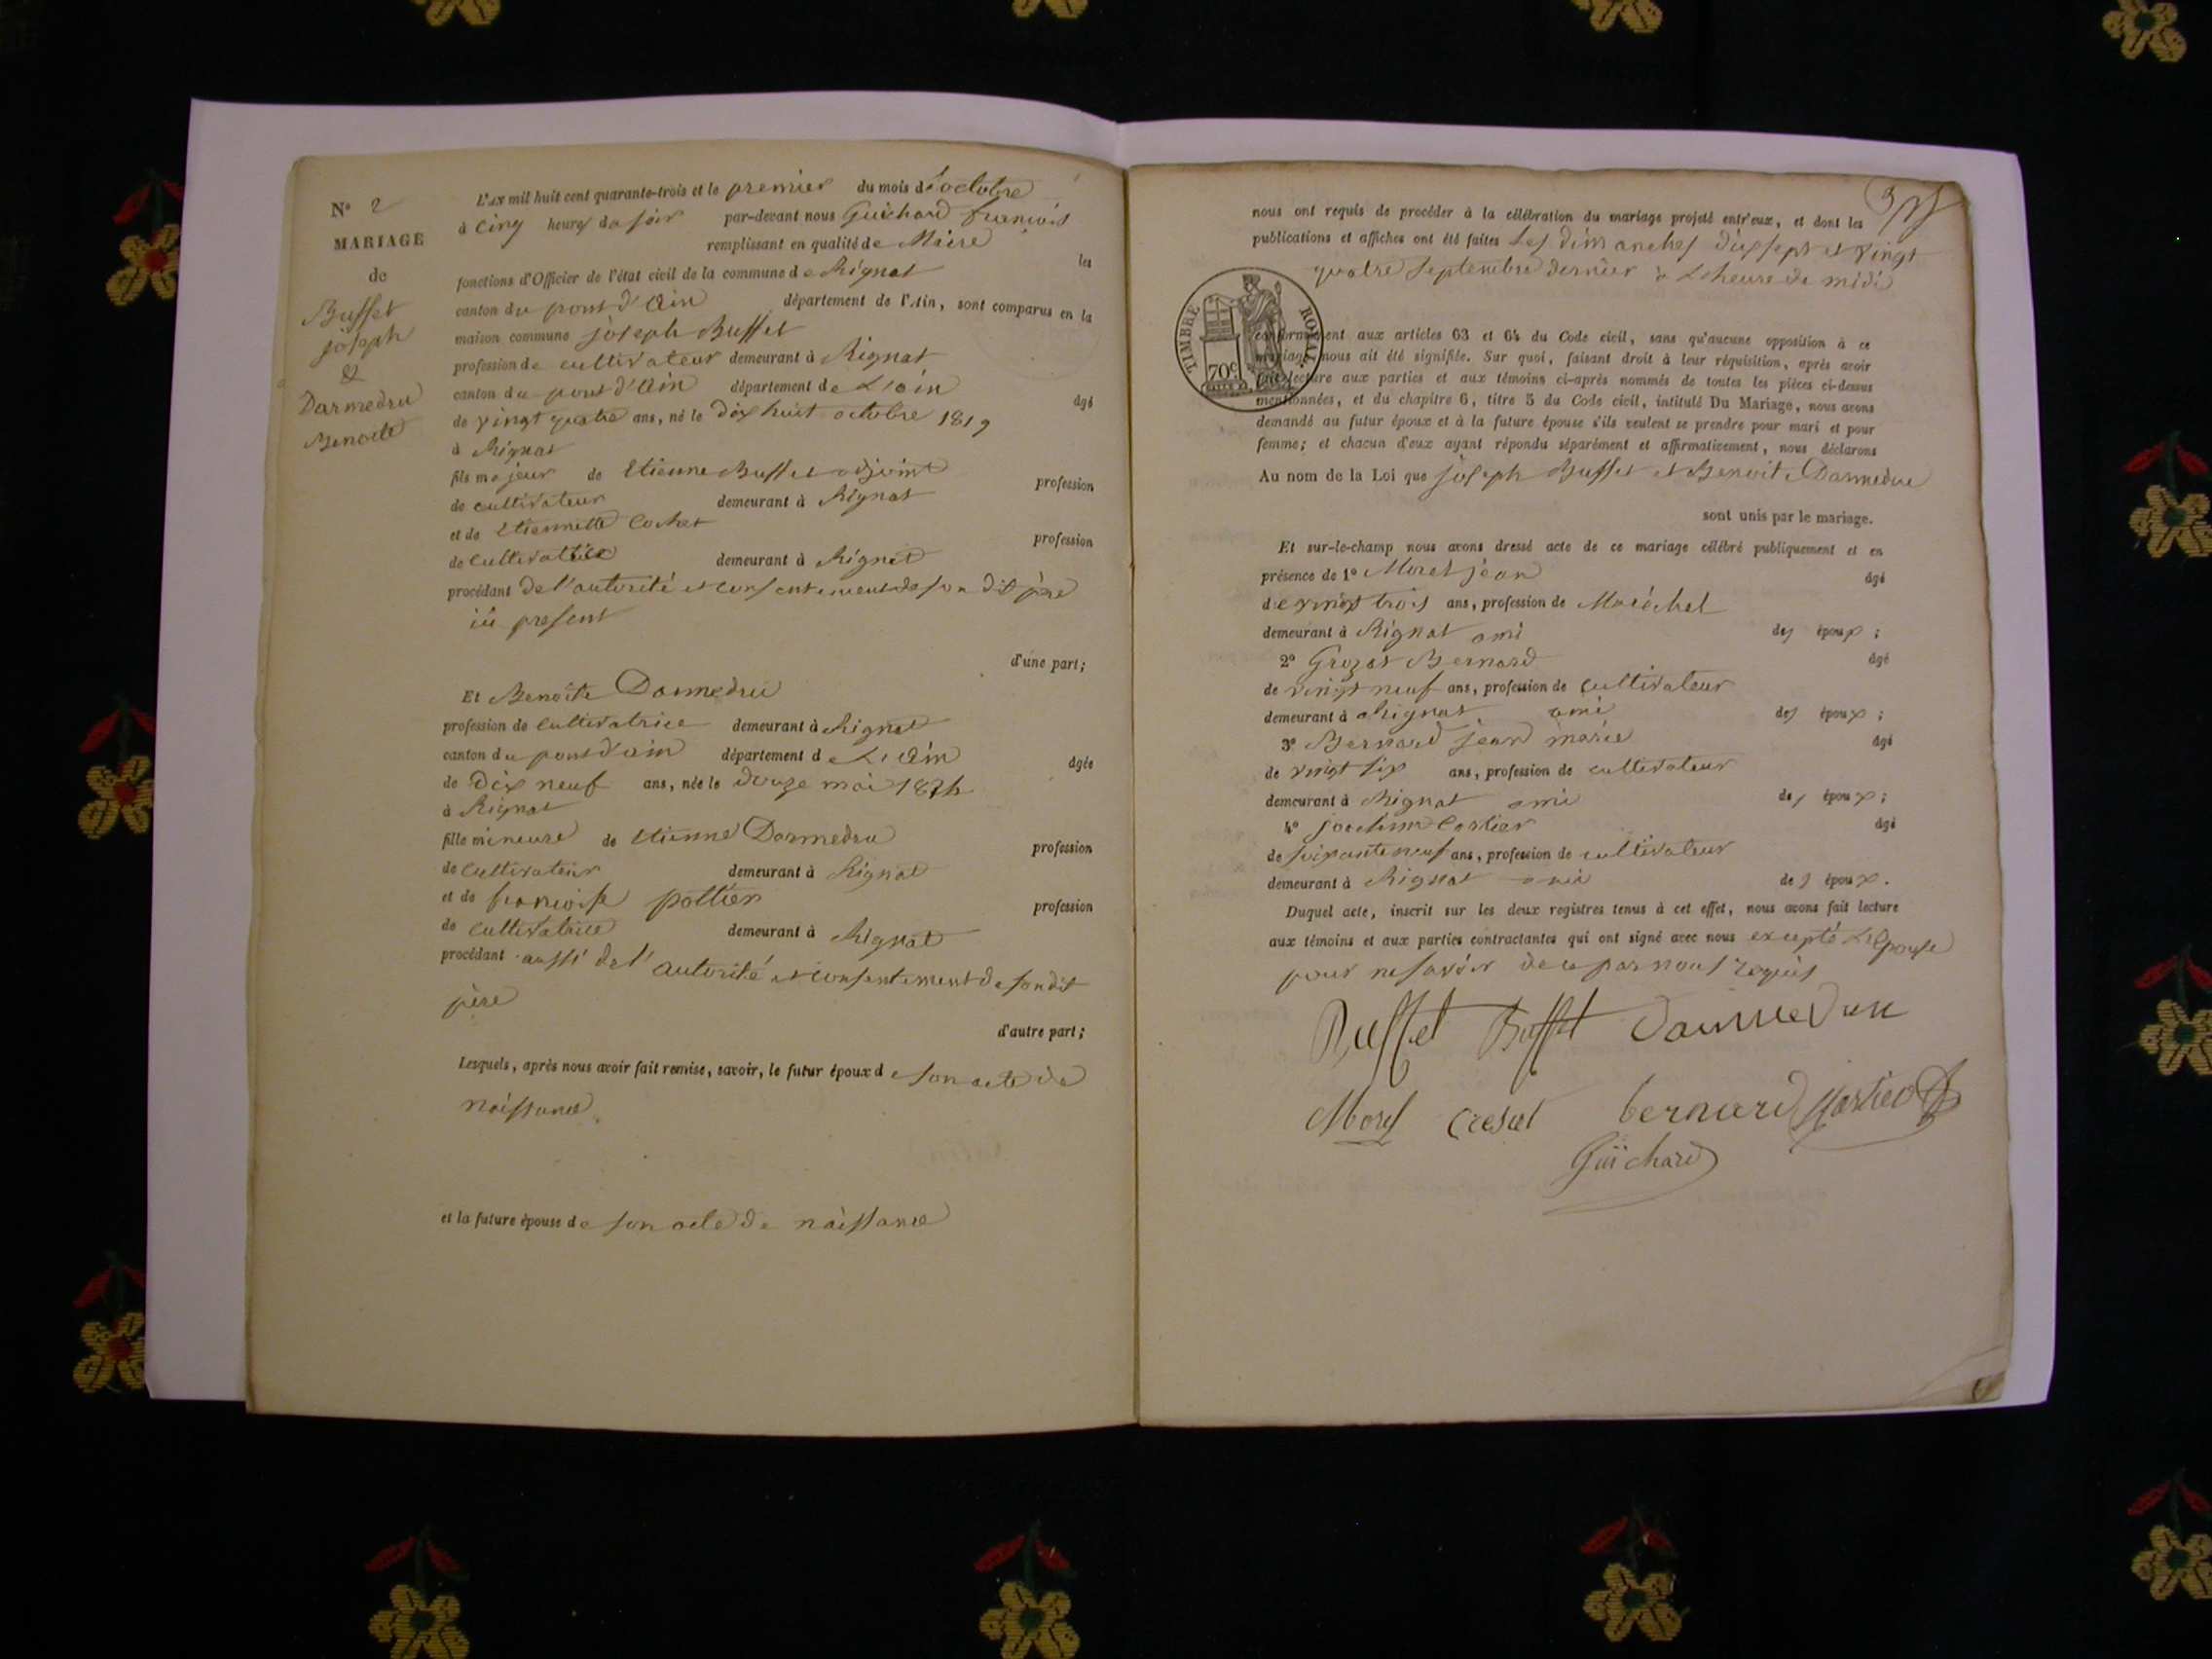 N° 2
MARIAGE
de
Buffet
joseph
&
Darmedru
Benoite
L'AN mil huit cent quarante-trois et le premier du mois d'octobre
à cinq heures du soir par-devant nous Guichard francois
remplissant en qualité de Maire les
fonctions d'Officier de l'état civil de la commune de Rignat
canton du pont d'ain département de l'Ain, sont comparus en la
maison commune joseph Buffet
profession de cultivateur demeurant à Rignat
canton du pont d'ain département de L'ain âgé
de vingt quatre ans, né le dix huit octobre 1819
à Rignat
fils majeur de Etienne Buffet adjoint profession
de cultivateur demeurant à Rignat
et de Etiennette Cochet profession
de cultivatrice demeurant à Rignat
procédant de l'autorité et consentement de son dit père
ici present
d'une part;
Et Benoite Darmedru
profession de cultivatrice demeurant à Rignat
canton du pont d'ain département de L'ain âgée
de dix neuf ans, née le douze mai 1824
à Rignat
fille mineure de Etienne Darmedru profession
de cultivateur demeurant à Rignat
et de francoise pottier profession
de cultivatrice demeurant à Rignat
procédant aussi de l'autorité et consentement de son dit
père
d'autre part;
Lesquels, après nous avoir fait remise, savoir, le futur époux de son acte de
naissance
et la future épouse de son acte de naissance
3
nous ont requis de procéder à la célébration du mariage projeté entr'eux, et dont les
publications et affiches ont été faites les dimanches dix sept et vingt
quatre septembre dernier à L'heure de midi
TIMBRE ROYAL.
70c
conformément aux articles 63 et 64 du Code civil, sans qu'aucune opposition à ce
mariage nous ait été signifiée. Sur quoi, faisant droit à leur réquisition, après avoir
fait lecture aux parties et aux témoins ci-après nommés de toutes les pièces ci-dessus
mentionnées, et du chapitre 6, titre 5 du Code civil, intitulé Du Mariage, nous avons
demandé au futur époux et à la future épouse s'ils veulent se prendre pour mari et pour
femme; et chacun d'eux ayant répondu séparément et affirmativement, nous déclarons
Au nom de la Loi que joseph Buffet et Benoite Darmedru
sont unis par le mariage.
Et sur-le-champ nous avons dressé acte de ce mariage célébré publiquement et en
présence de 1° Morel jean âgé
de vingt trois ans, profession de Maréchal
demeurant à Rignat ami des époux;
2° Bernard âgé
de vingt neuf ans, profession de cultivateur
demeurant à Rignat ami des époux;
3° Bernard jean marie âgé
de vingt six ans, profession de cultivateur
demeurant à Rignat ami des époux;
4° joachim Cortier âgé
de soixante neuf ans, profession de cultivateur
demeurant à Rignat ami des époux.
Duquel acte, inscrit sur les deux registres tenus à cet effet, nous avons fait lecture
aux témoins et aux parties contractantes qui ont signé avec nous excepté L'épouse
pour ne savoir de ce par nous requis
Buffet Buffet Darmedru
Morel bernard
Guichard